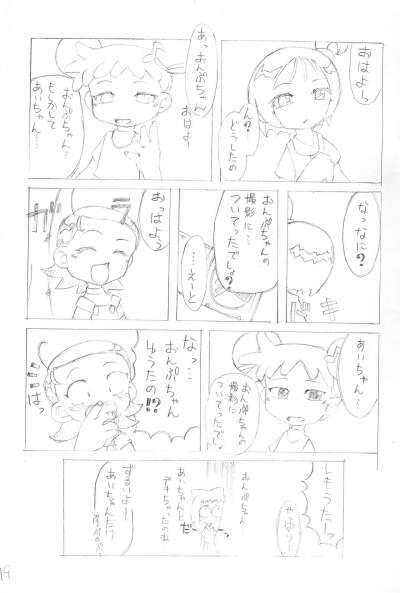 おはよっ
ん?
どうしたの
あっおんぷちゃん
おはよ
おんぷちゃん…
もしかして
あいちゃん…
なっなに?
ドキ
おんぷちゃんの
撮影に…
ついてったでしょ?
……えーと
おっはよう
ガラ
あいちゃん…?
おんぷちゃんの
撮影に
ついてったでしょ
なっ…
おんぷちゃん
ゆうたの!?
はっ
しもうたーっ
やはり…
おんぷちゃん…
あいちゃんと
デキちゃったのね
だっ
ずるいよー
あいちゃんだけ
19